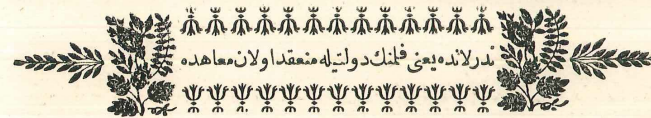 ندرلانده يعنى فلمنك دولتيله منعقد اولان معاهده